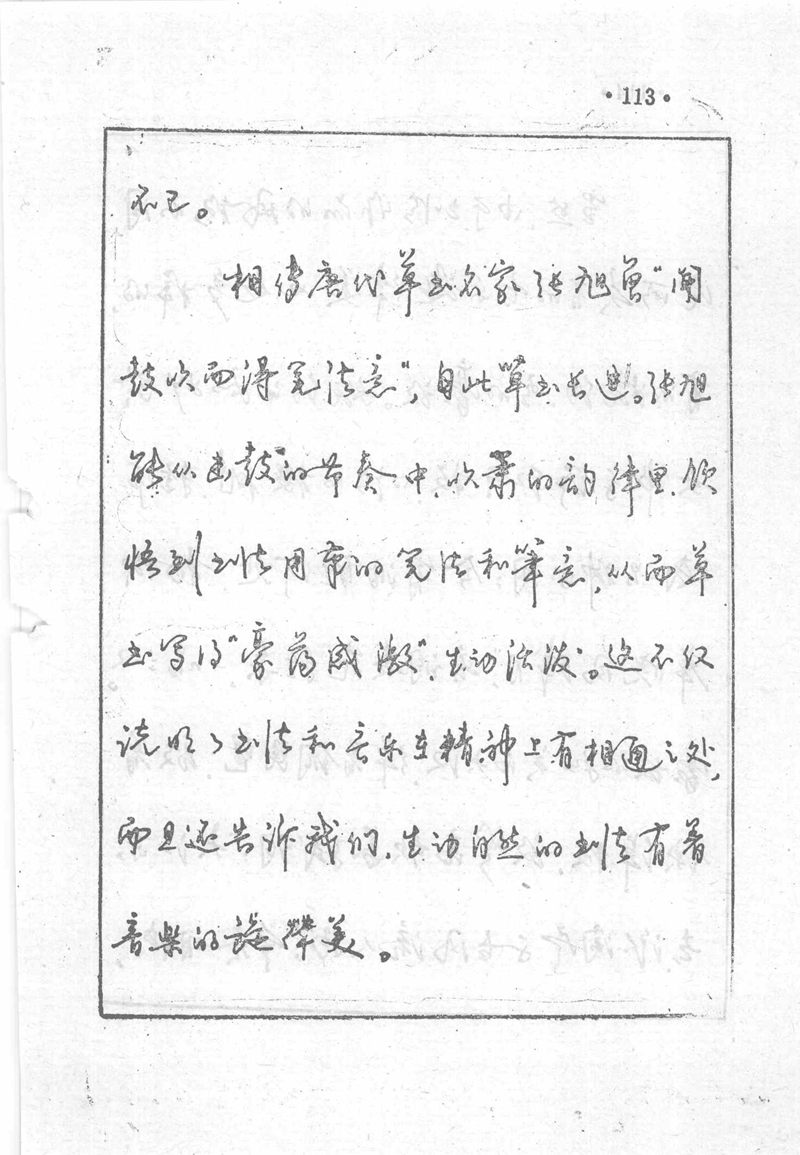 ·113·
不已。
相传唐代草书名家张旭曾“闻
鼓吹而得笔法意”，自此草书长进。张旭
能从击鼓的节奏中，吹箫的韵律里，领
悟到书法用笔的笔法和笔意，从而草
书写得“豪荡感激”，生动活泼。这不仅
说明了书法和音乐在精神上有相通之处，
而且还告诉我们，生动自然的书法有着
音乐的旋律美。